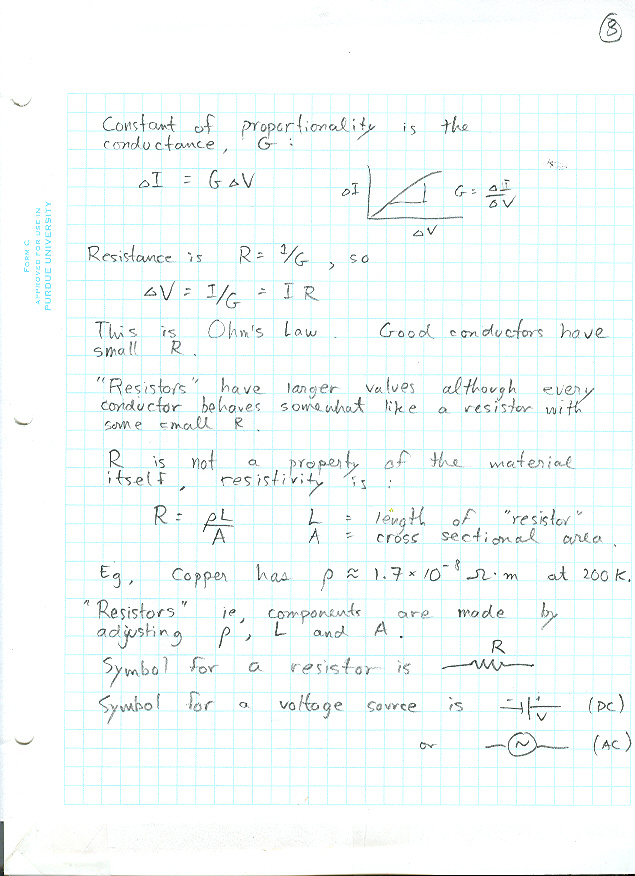 8
Constant of proportionality is the
conductance, G :
ΔI = G ΔV
ΔI
G = ΔI/ΔV
ΔV
Resistance is R = 1/G , so
ΔV = I/G = I R
This is Ohm's Law. Good conductors have
small R.
"Resistors" have larger values although every
conductor behaves somewhat like a resistor with
some small R.
R is not a property of the material
itself, resistivity is :
R = ρL/A L = length of "resistor"
A = cross sectional area.
Eg, Copper has ρ ≈ 1.7 × 10⁻⁸ Ω·m at 200K.
"Resistors" ie, components are made by
adjusting ρ, L and A.
R
Symbol for a resistor is
Symbol for a voltage source is - + V (DC)
or ~ (AC)
FORM C
APPROVED FOR USE IN
PURDUE UNIVERSITY